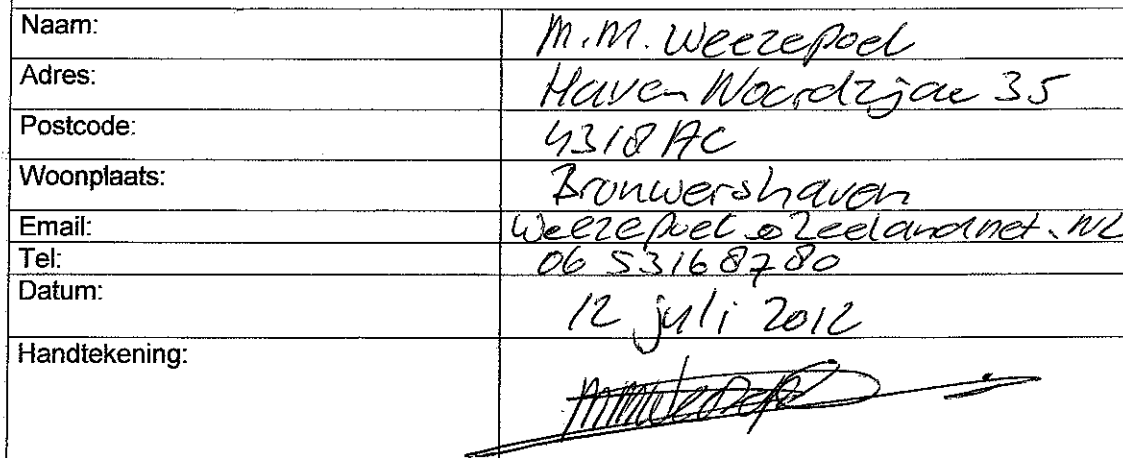 Naam: M.M. Weezepoel
Adres: Haven Noordzijde 35
Postcode: 4318 AC
Woonplaats: Brouwershaven
Email: Weezepoel@Zeelandnet.NL
Tel: 06 53168780
Datum: 12 juli 2012
Handtekening: